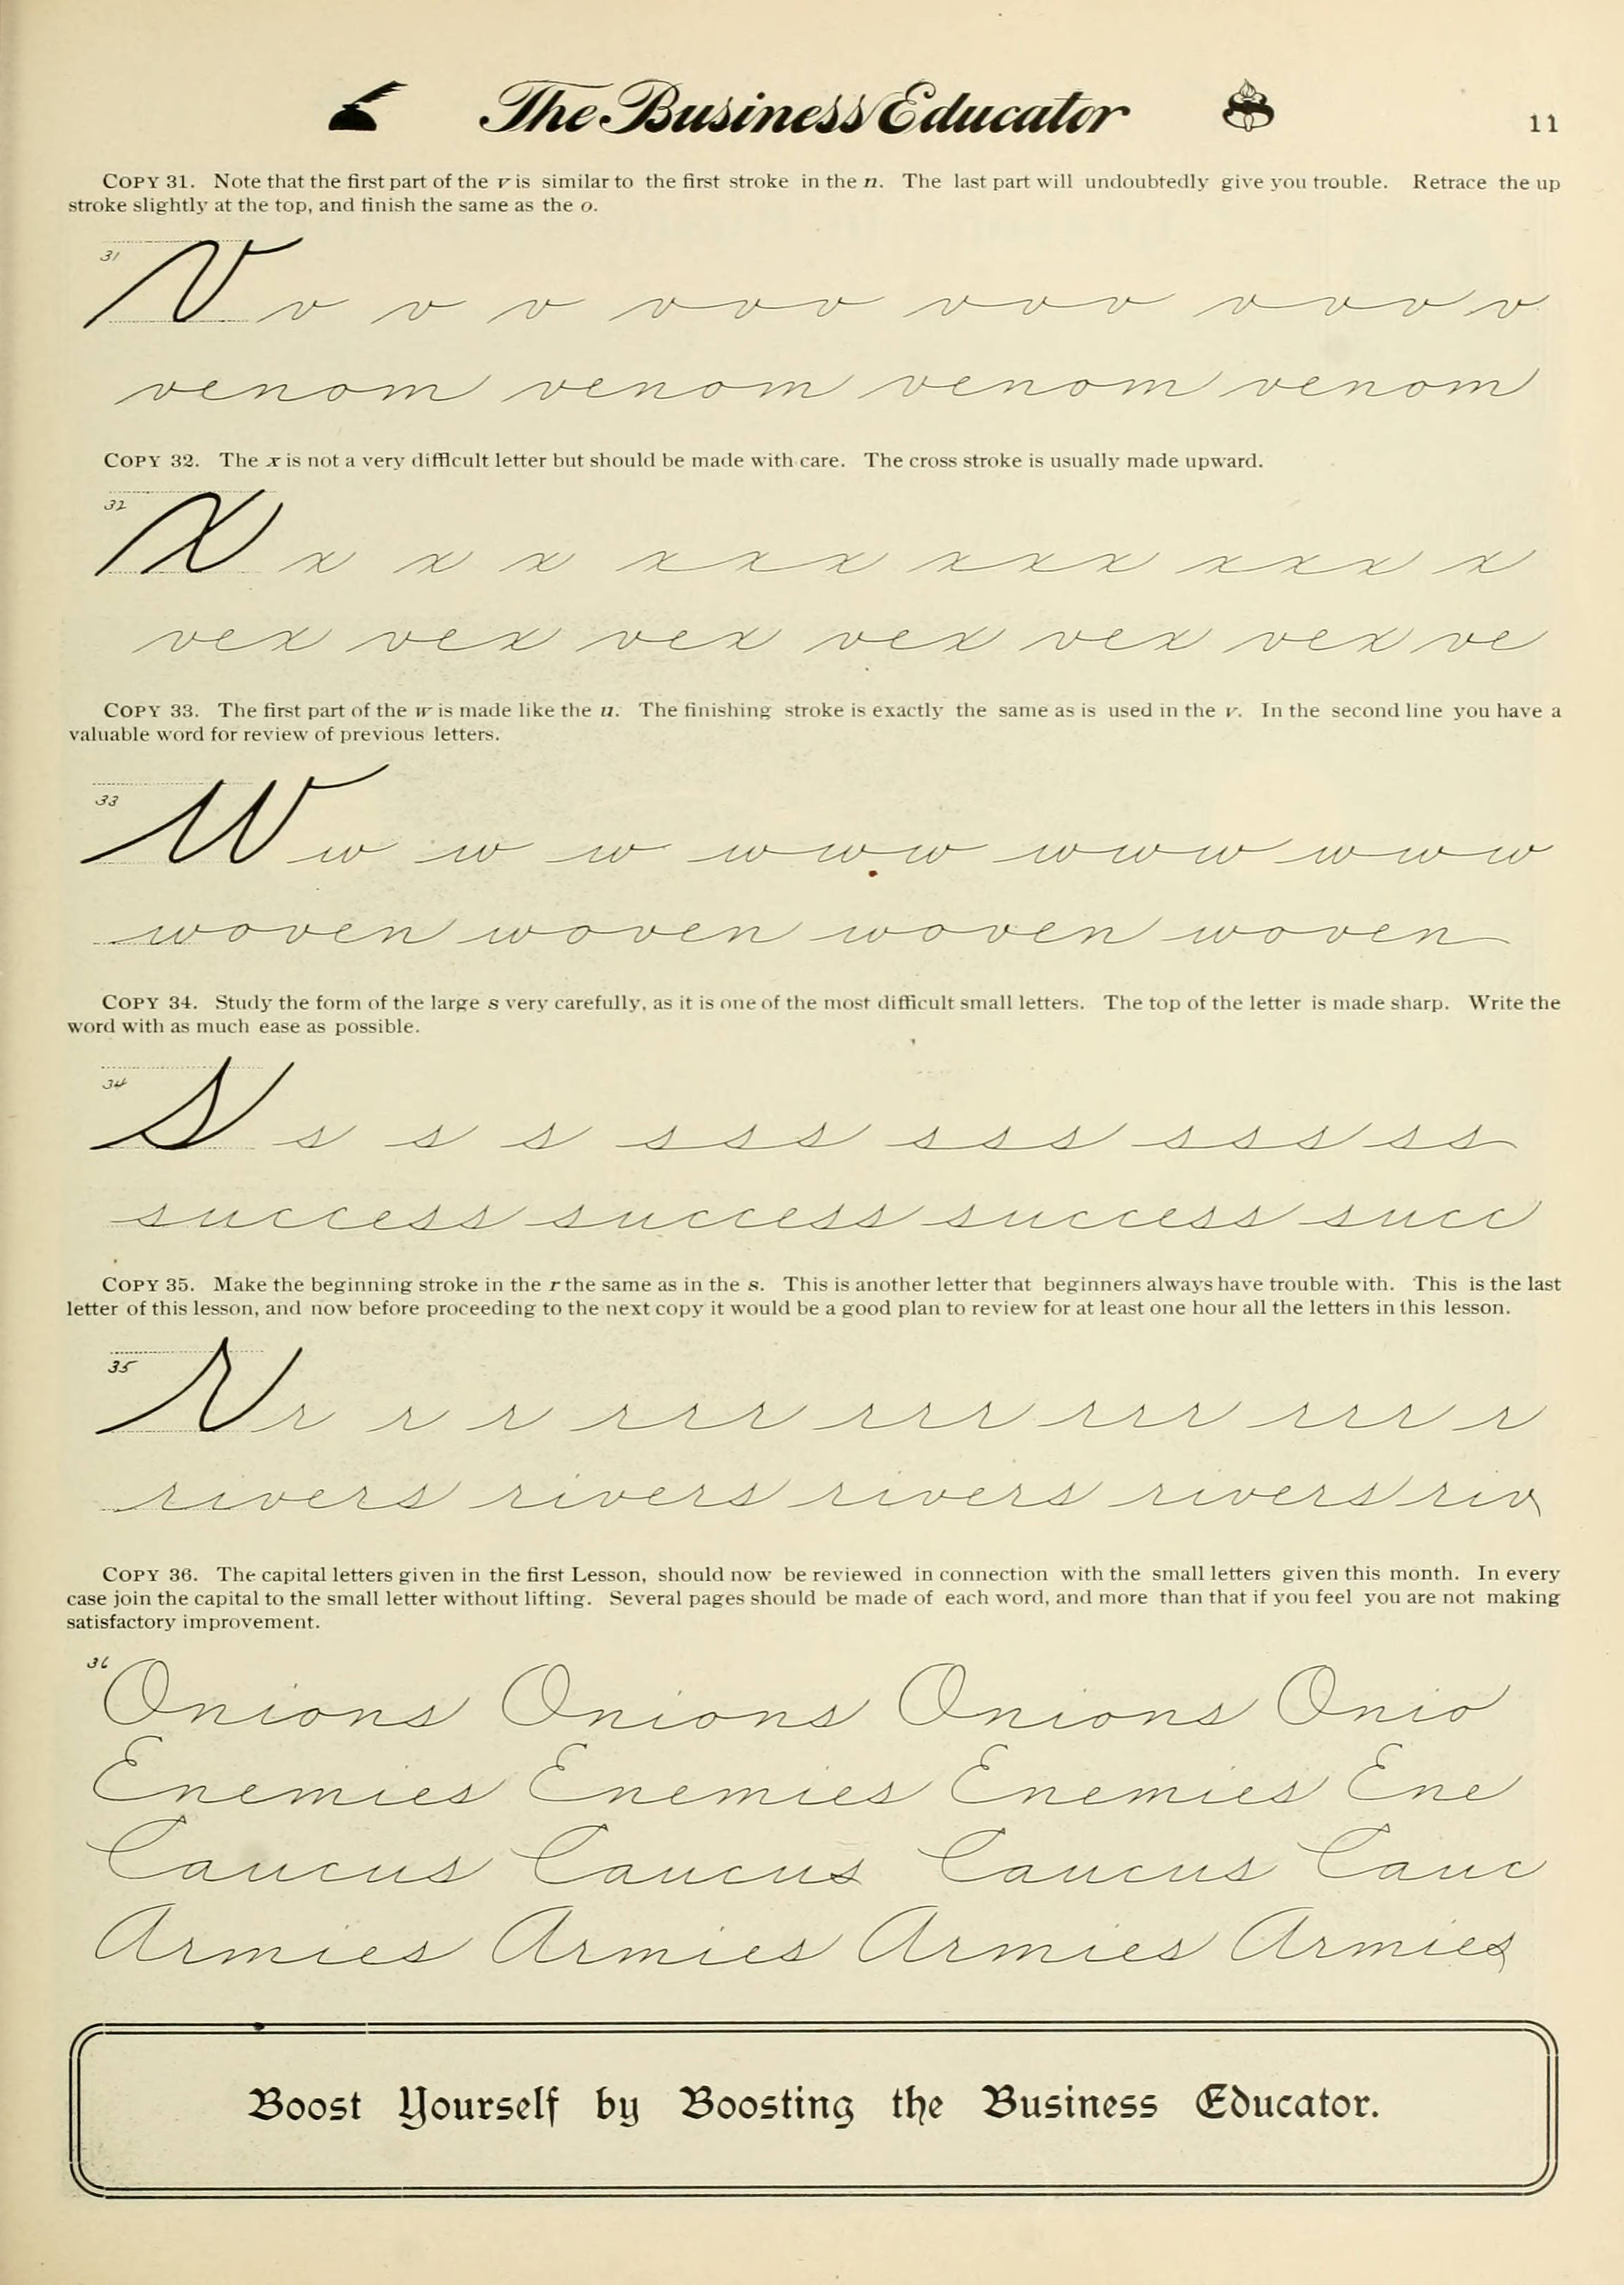 The Business Educator 11
COPY 31. Note that the first part of the v is similar to the first stroke in the n. The last part will undoubtedly give you trouble. Retrace the up
stroke slightly at the top, and finish the same as the o.
31
v v v v v v v v v v v v v v
venom venom venom venom
COPY 32. The x is not a very difficult letter but should be made with care. The cross stroke is usually made upward.
32
x x x x x x x x x x x x x x
vex vex vex vex vex vex ve
COPY 33. The first part of the w is made like the u. The finishing stroke is exactly the same as is used in the v. In the second line you have a
valuable word for review of previous letters.
33
w w w w w w w w w w w w w
woven woven woven woven
COPY 34. Study the form of the large s very carefully, as it is one of the most difficult small letters. The top of the letter is made sharp. Write the
word with as much ease as possible.
34
s s s s s s s s s s s s s s s s
success success success succ
COPY 35. Make the beginning stroke in the r the same as in the s. This is another letter that beginners always have trouble with. This is the last
letter of this lesson, and now before proceeding to the next copy it would be a good plan to review for at least one hour all the letters in this lesson.
35
r r r r r r r r r r r r r r r r r
rivers rivers rivers rivers riv
COPY 36. The capital letters given in the first Lesson, should now be reviewed in connection with the small letters given this month. In every
case join the capital to the small letter without lifting. Several pages should be made of each word, and more than that if you feel you are not making
satisfactory improvement.
36
Onions Onions Onions Onio
Enemies Enemies Enemies Ene
Caucus Caucus Caucus Cauc
Armies Armies Armies Armies
Boost Yourself by Boosting the Business Educator.